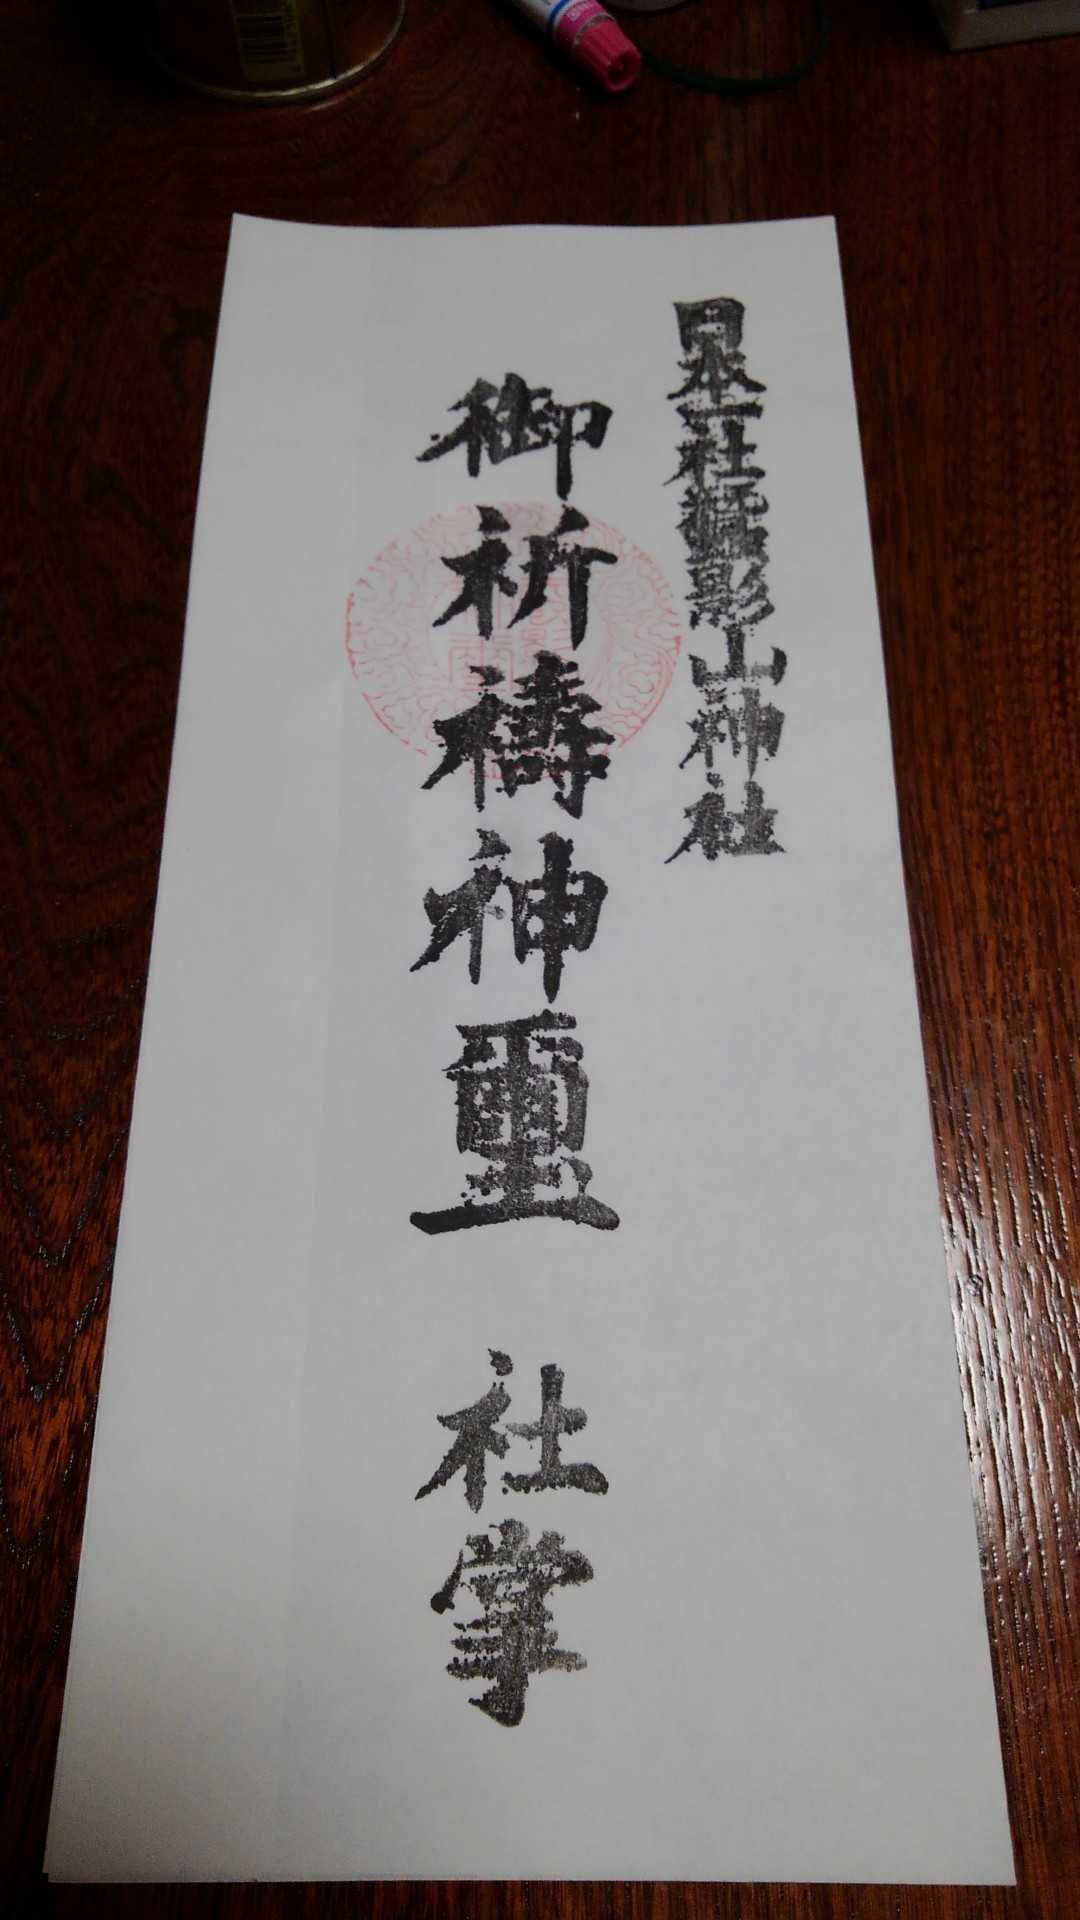 日本一社蠶影山神社
御祈禱神璽　社掌